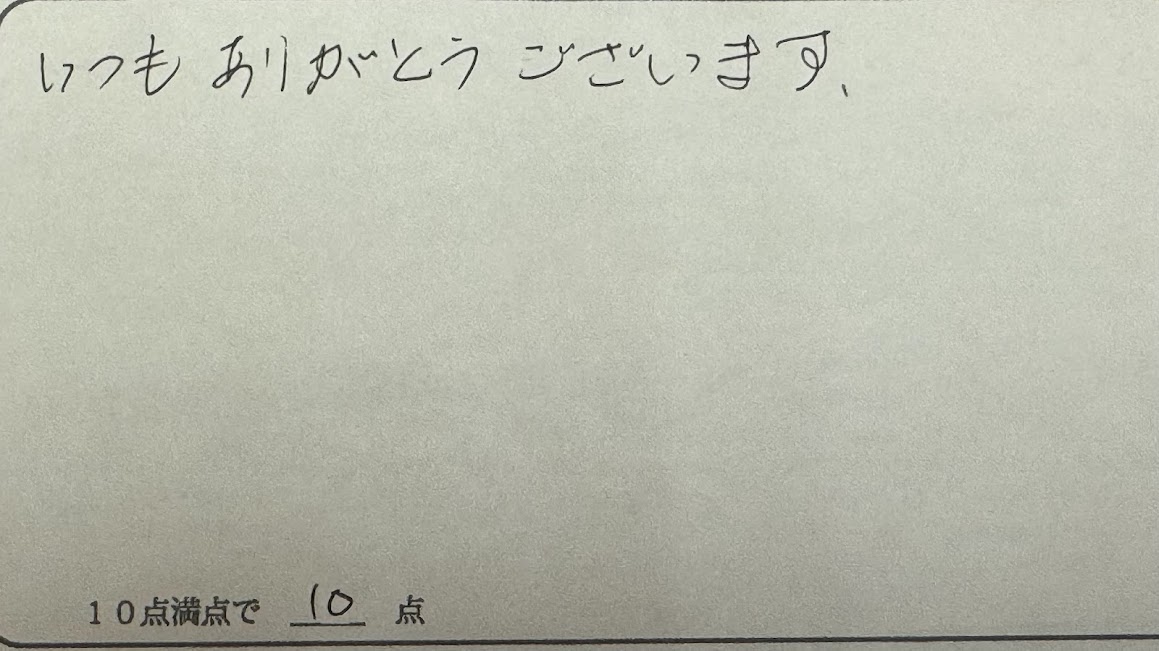 いつもありがとうございます、
10点満点で 10 点